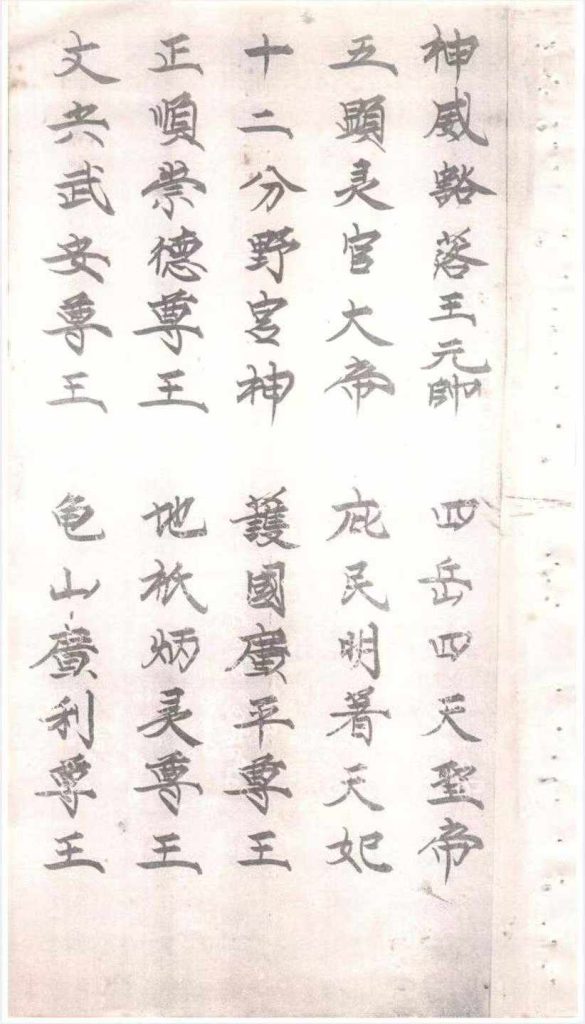 神威豁落王元帥 四岳四天聖帝
五顯灵官大帝 庇民明著天妃
十二分野宮神 護國廣平尊王
正順崇德尊王 地祇炳灵尊王
文兴武安尊王 龟山廣利尊王